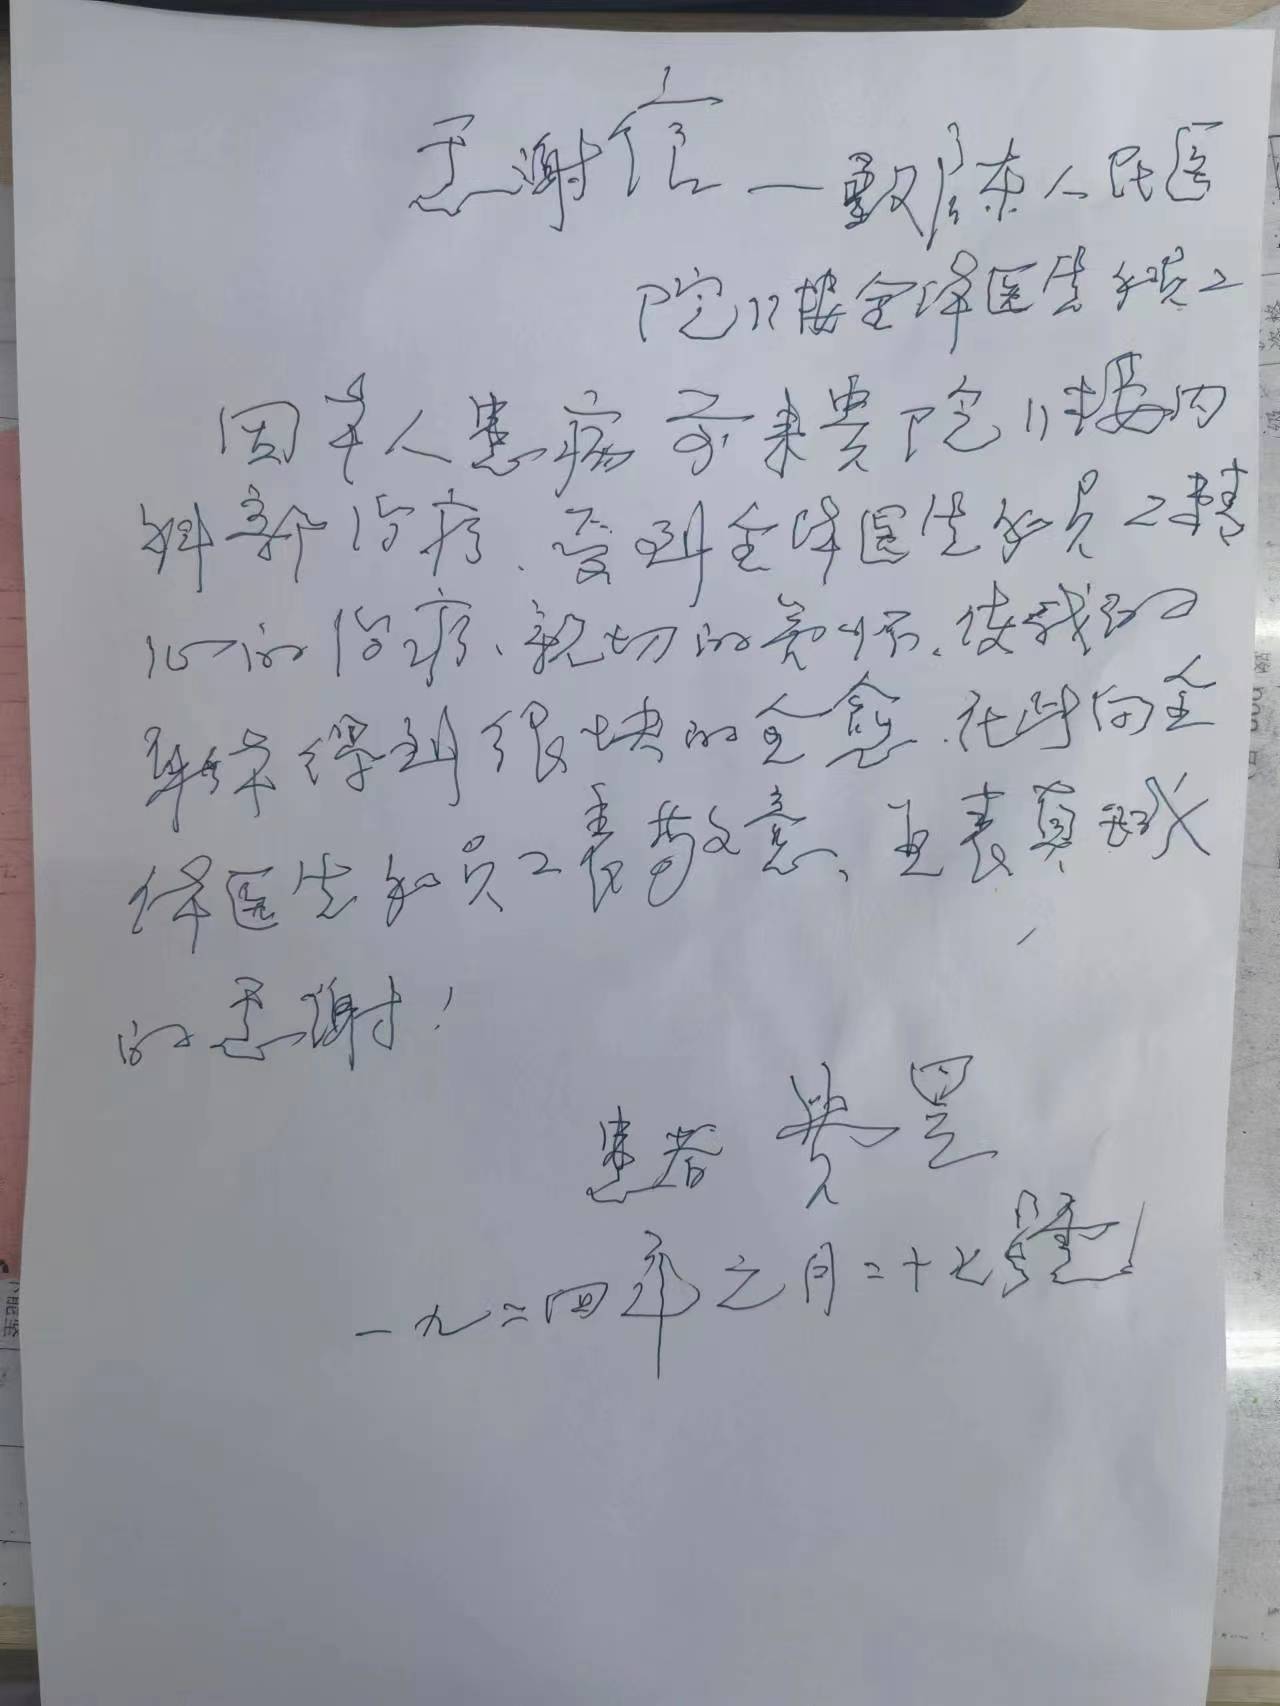 感谢信一致启东人民医
院11楼全体医生和员工
因本人患病前来贵院11楼内
科新治疗、受到全体医生和员工精
心的治疗、亲切的关怀、使我的
身体得到很块的全愈、在此向全
体医生和员工表敬意、並表真诚
的感谢！
患者
一九二四年 月二十七